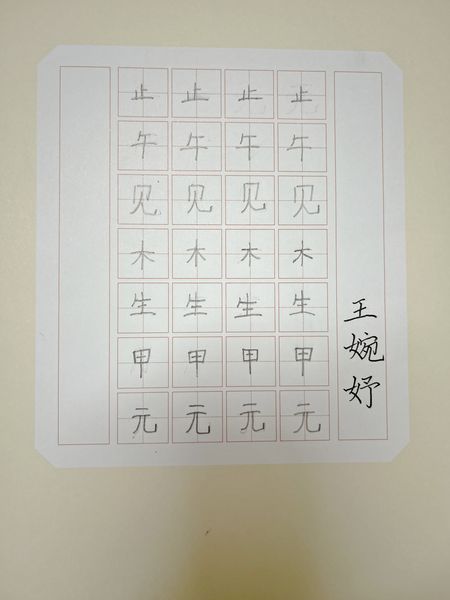 止止止止
午午午午
见见见见
木木木木
生生生生
甲甲甲甲
元元元元
王婉妤